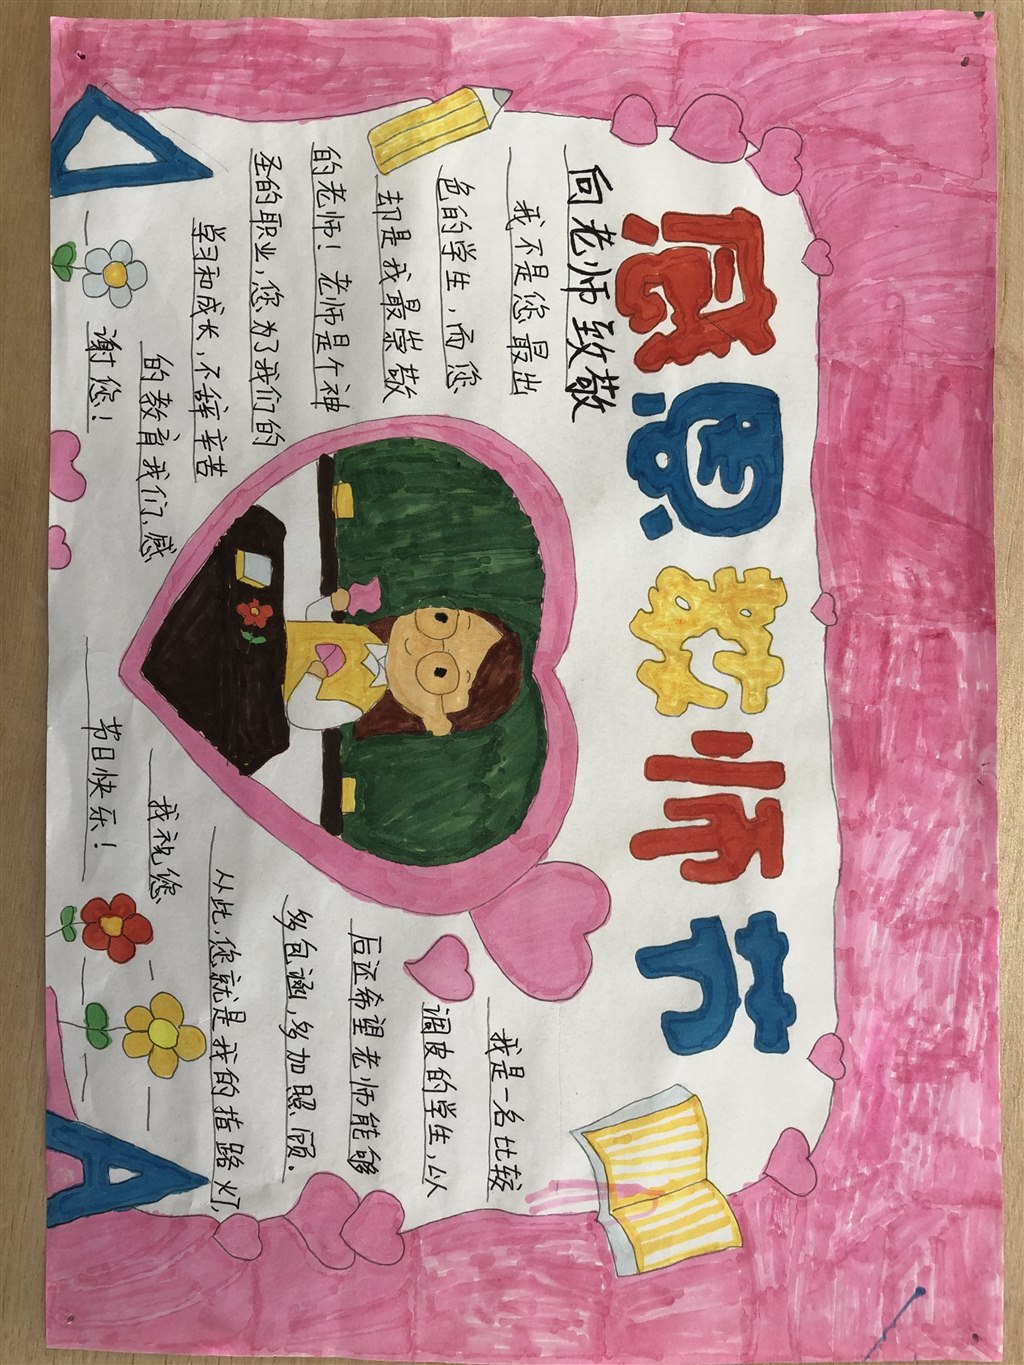 感恩教师节
向老师致敬
我不是您最出
色的学生,而您
却是我最崇敬
的老师!老师是个神
圣的职业,您为了我们的
学习和成长,不辞辛苦
的教育我们,感
谢您!
我是一名比较
调皮的学生,以
后还希望老师能够
多包涵,多加照顾.
从此,您就是我的指路灯,
我祝您
节日快乐!